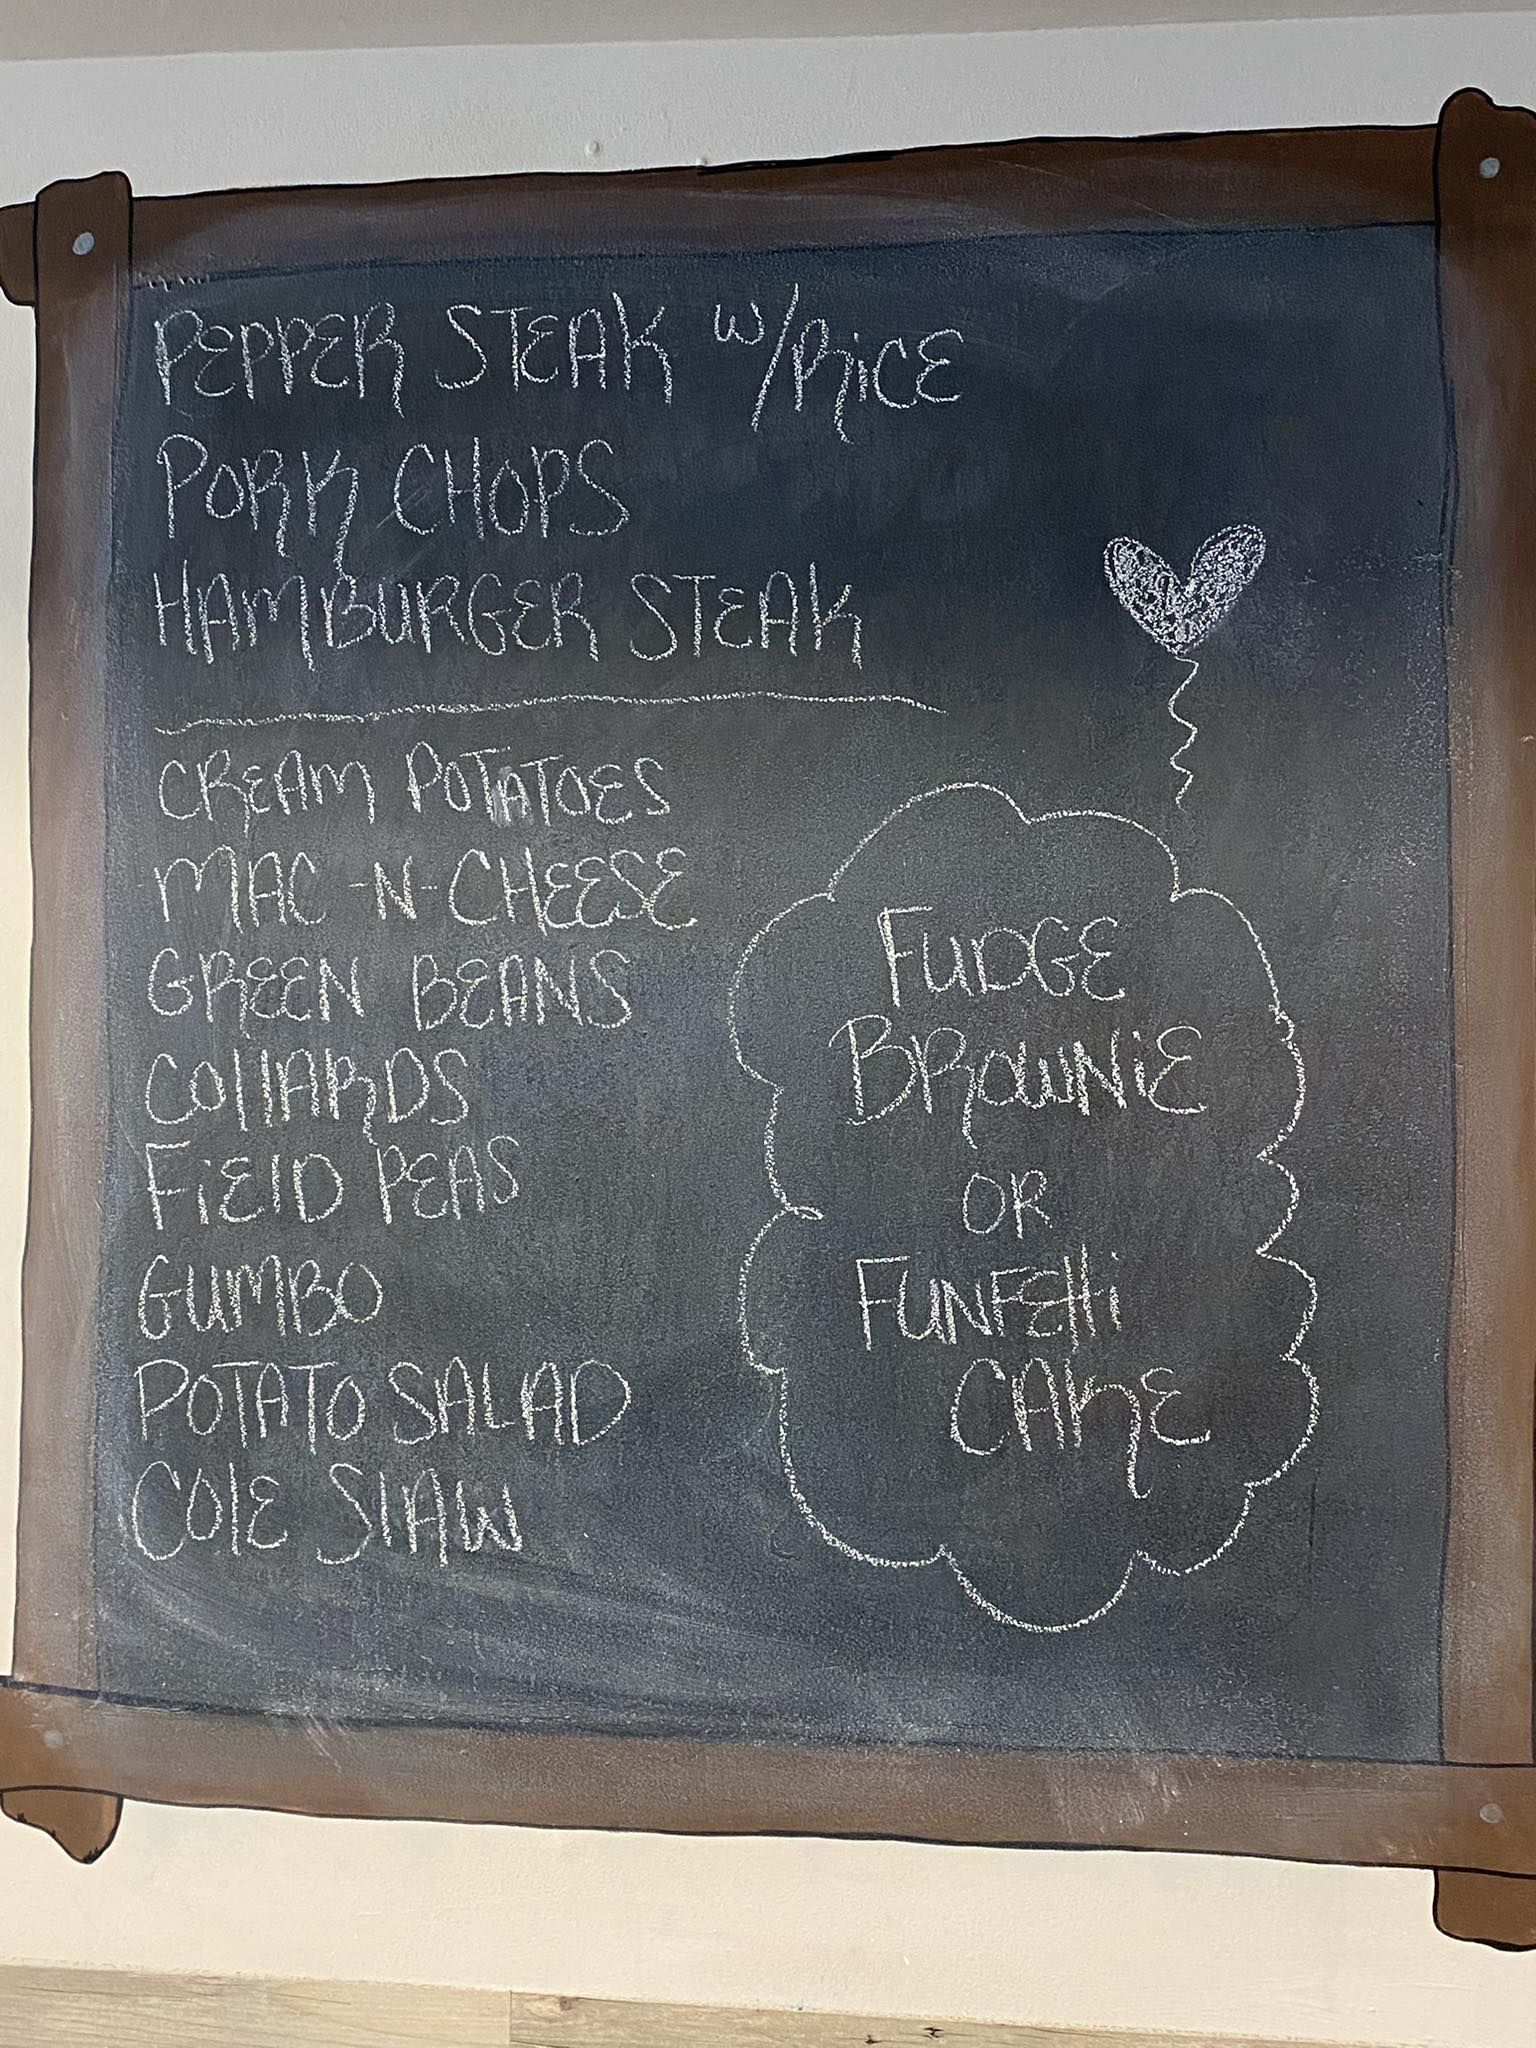 PEPPER STEAK W/RiCE
PORK CHOPS
HAMBURGER STEAK
CREAM POTATOES
MAC-N-CHEESE
GREEN BEANS
COllARDS
FiElD PEAS
GUMBO
POTATO SALAD
COlE SlAW
FUDGE
BROWNiE
OR
FUNFEtti
CAKE